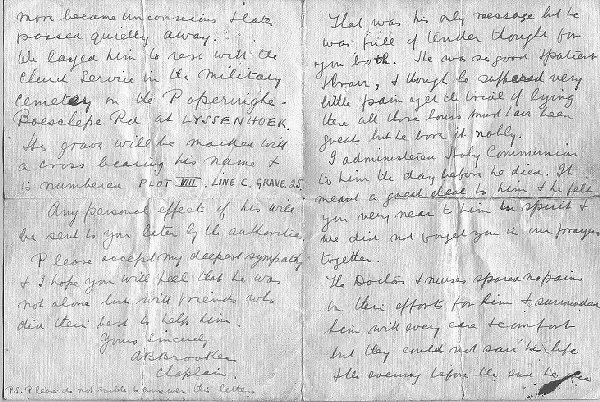 more became unconscious & later
passed quietly away.
We layed him to rest with the
Church Service in the Military
Cemetery on the Poperinghe-
Boeschepe Rd at LYSSENHOEK.
His grave will be marked with
a cross bearing his name &
is numbered PLOT VIII. LINE C. GRAVE 25.
Any personal effects of his will
be sent to you later by the authorities.
Please accept my deepest sympathy
& I hope you will feel that he was
not alone but with friends who
did their best to help him.
Yours sincerely
Chaplain.
P.S. Please do not trouble to answer this letter.
That was his only message but he
was full of tender thought for
you both. He was so good & patient
& brave, & though he suffered very
little pain yet the trial of lying
there all those hours must have been
great but he bore it nobly.
I administered Holy Communion
to him the day before he died. It
meant a great deal to him & he felt
you very near to him in spirit &
we did not forget you in our prayers
together.
The Doctors & nurses spared no pains
in their efforts for him & surrounded
him with every care & comfort
but they could not save his life
& the evening before the end he